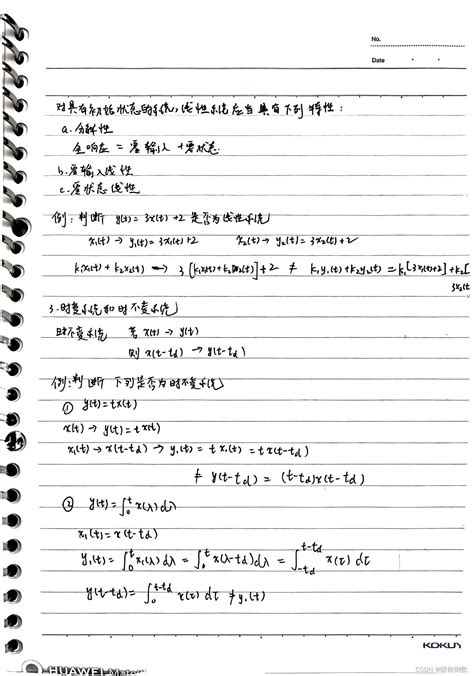 No.
Date
对具有初始状态的系统,线性系统应当具有下列特性:
a.分解性
全响应 = 零输入 + 零状态
b.零输入线性
c.零状态线性
例:判断 y(t)=3x(t)+2 是否为线性系统
x₁(t) → y₁(t)=3x₁(t)+2 x₂(t) → y₂(t)=3x₂(t)+2
k₁x₁(t)+k₂x₂(t) → 3[k₁x₁(t)+k₂x₂(t)]+2 ≠ k₁y₁(t)+k₂y₂(t)=k₁[3x₁(t)+2]+k₂[
3x₂(t
3.时变系统和时不变系统
时不变系统 若 x(t) → y(t)
则 x(t-td) → y(t-td)
例:判断 下列是否为时不变系统
① y(t)=tx(t)
x(t) → y(t)=tx(t)
x₁(t) → x(t-td) → y₁(t)=tx₁(t)=tx(t-td)
≠ y(t-td)=(t-td)x(t-td)
② y(t)=∫₀ᵗ x(λ)dλ
x₁(t)=x(t-td)
y₁(t)=∫₀ᵗ x₁(λ)dλ=∫₀ᵗ x(λ-td)dλ=∫₋td^t-td x(τ)dτ
y(t-td)=∫₀^t-td x(τ)dτ ≠ y₁(t)
KOKUY
HUAWEI Mate
CSDN